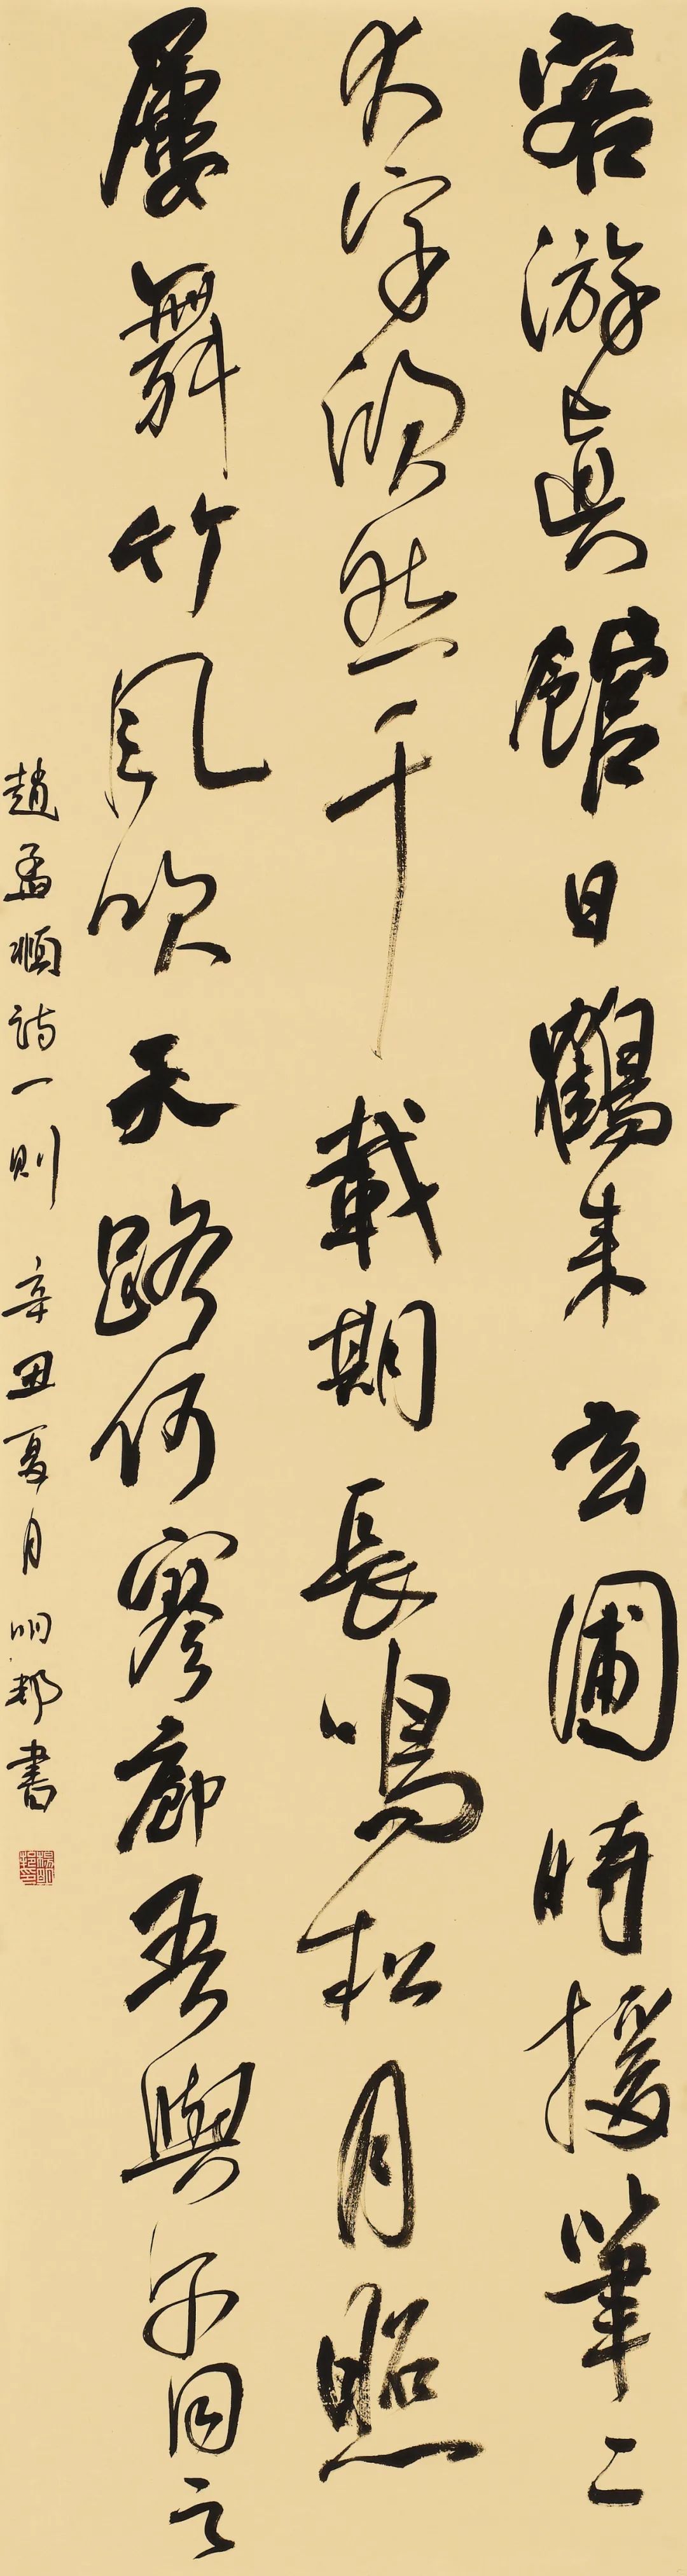 客游真館日鶴来玄圃時援筆二
大字㳄然千載期長鳴松月照
屢舞竹風吹天路何寥廊吾與子同之
趙孟頫詩一則 辛丑夏月明邦書